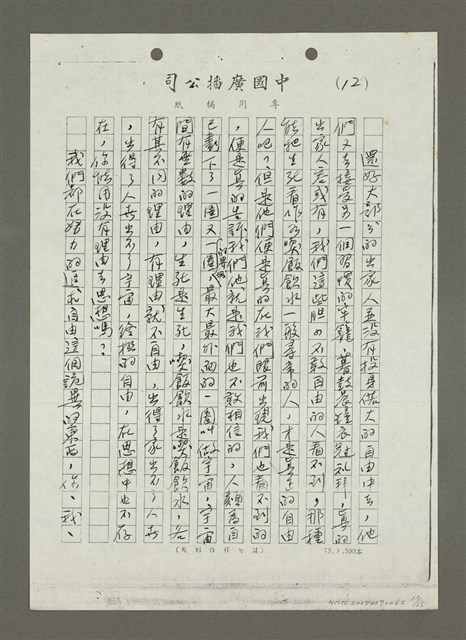 (12)
中國廣播公司
專用稿紙
還好大部分的出家人並沒有投身偌大的自由中去，他
們又去接受另一個習慣的牢籠，暮鼓晨鐘衣冠禮拜，真的
出家人容或有，我們這些胆小不敢自由的人看不到，那種
能把生死看作和喫飯飲水一般尋常的人，才是真正的自由
人吧？但是他們便是真的在我們眼前出現我們也看不到的
，便是真的告訴我們他就是我們也不敢相信的，人類為自
己劃下了一圈又一圈的界限，最大最外面的一圈叫做宇宙，宇宙
間有無數的理由，生死是生死，喫飯飲水是喫飯飲水，各
有其不同的理由，有理由就不自由，出得了家出不了人世
，出得了人世出不了宇宙，終極的自由，在思想中也不存
在，你能用沒有理由去思想嗎？
我們都在努力的追求自由這個詭異的東西，你、我、